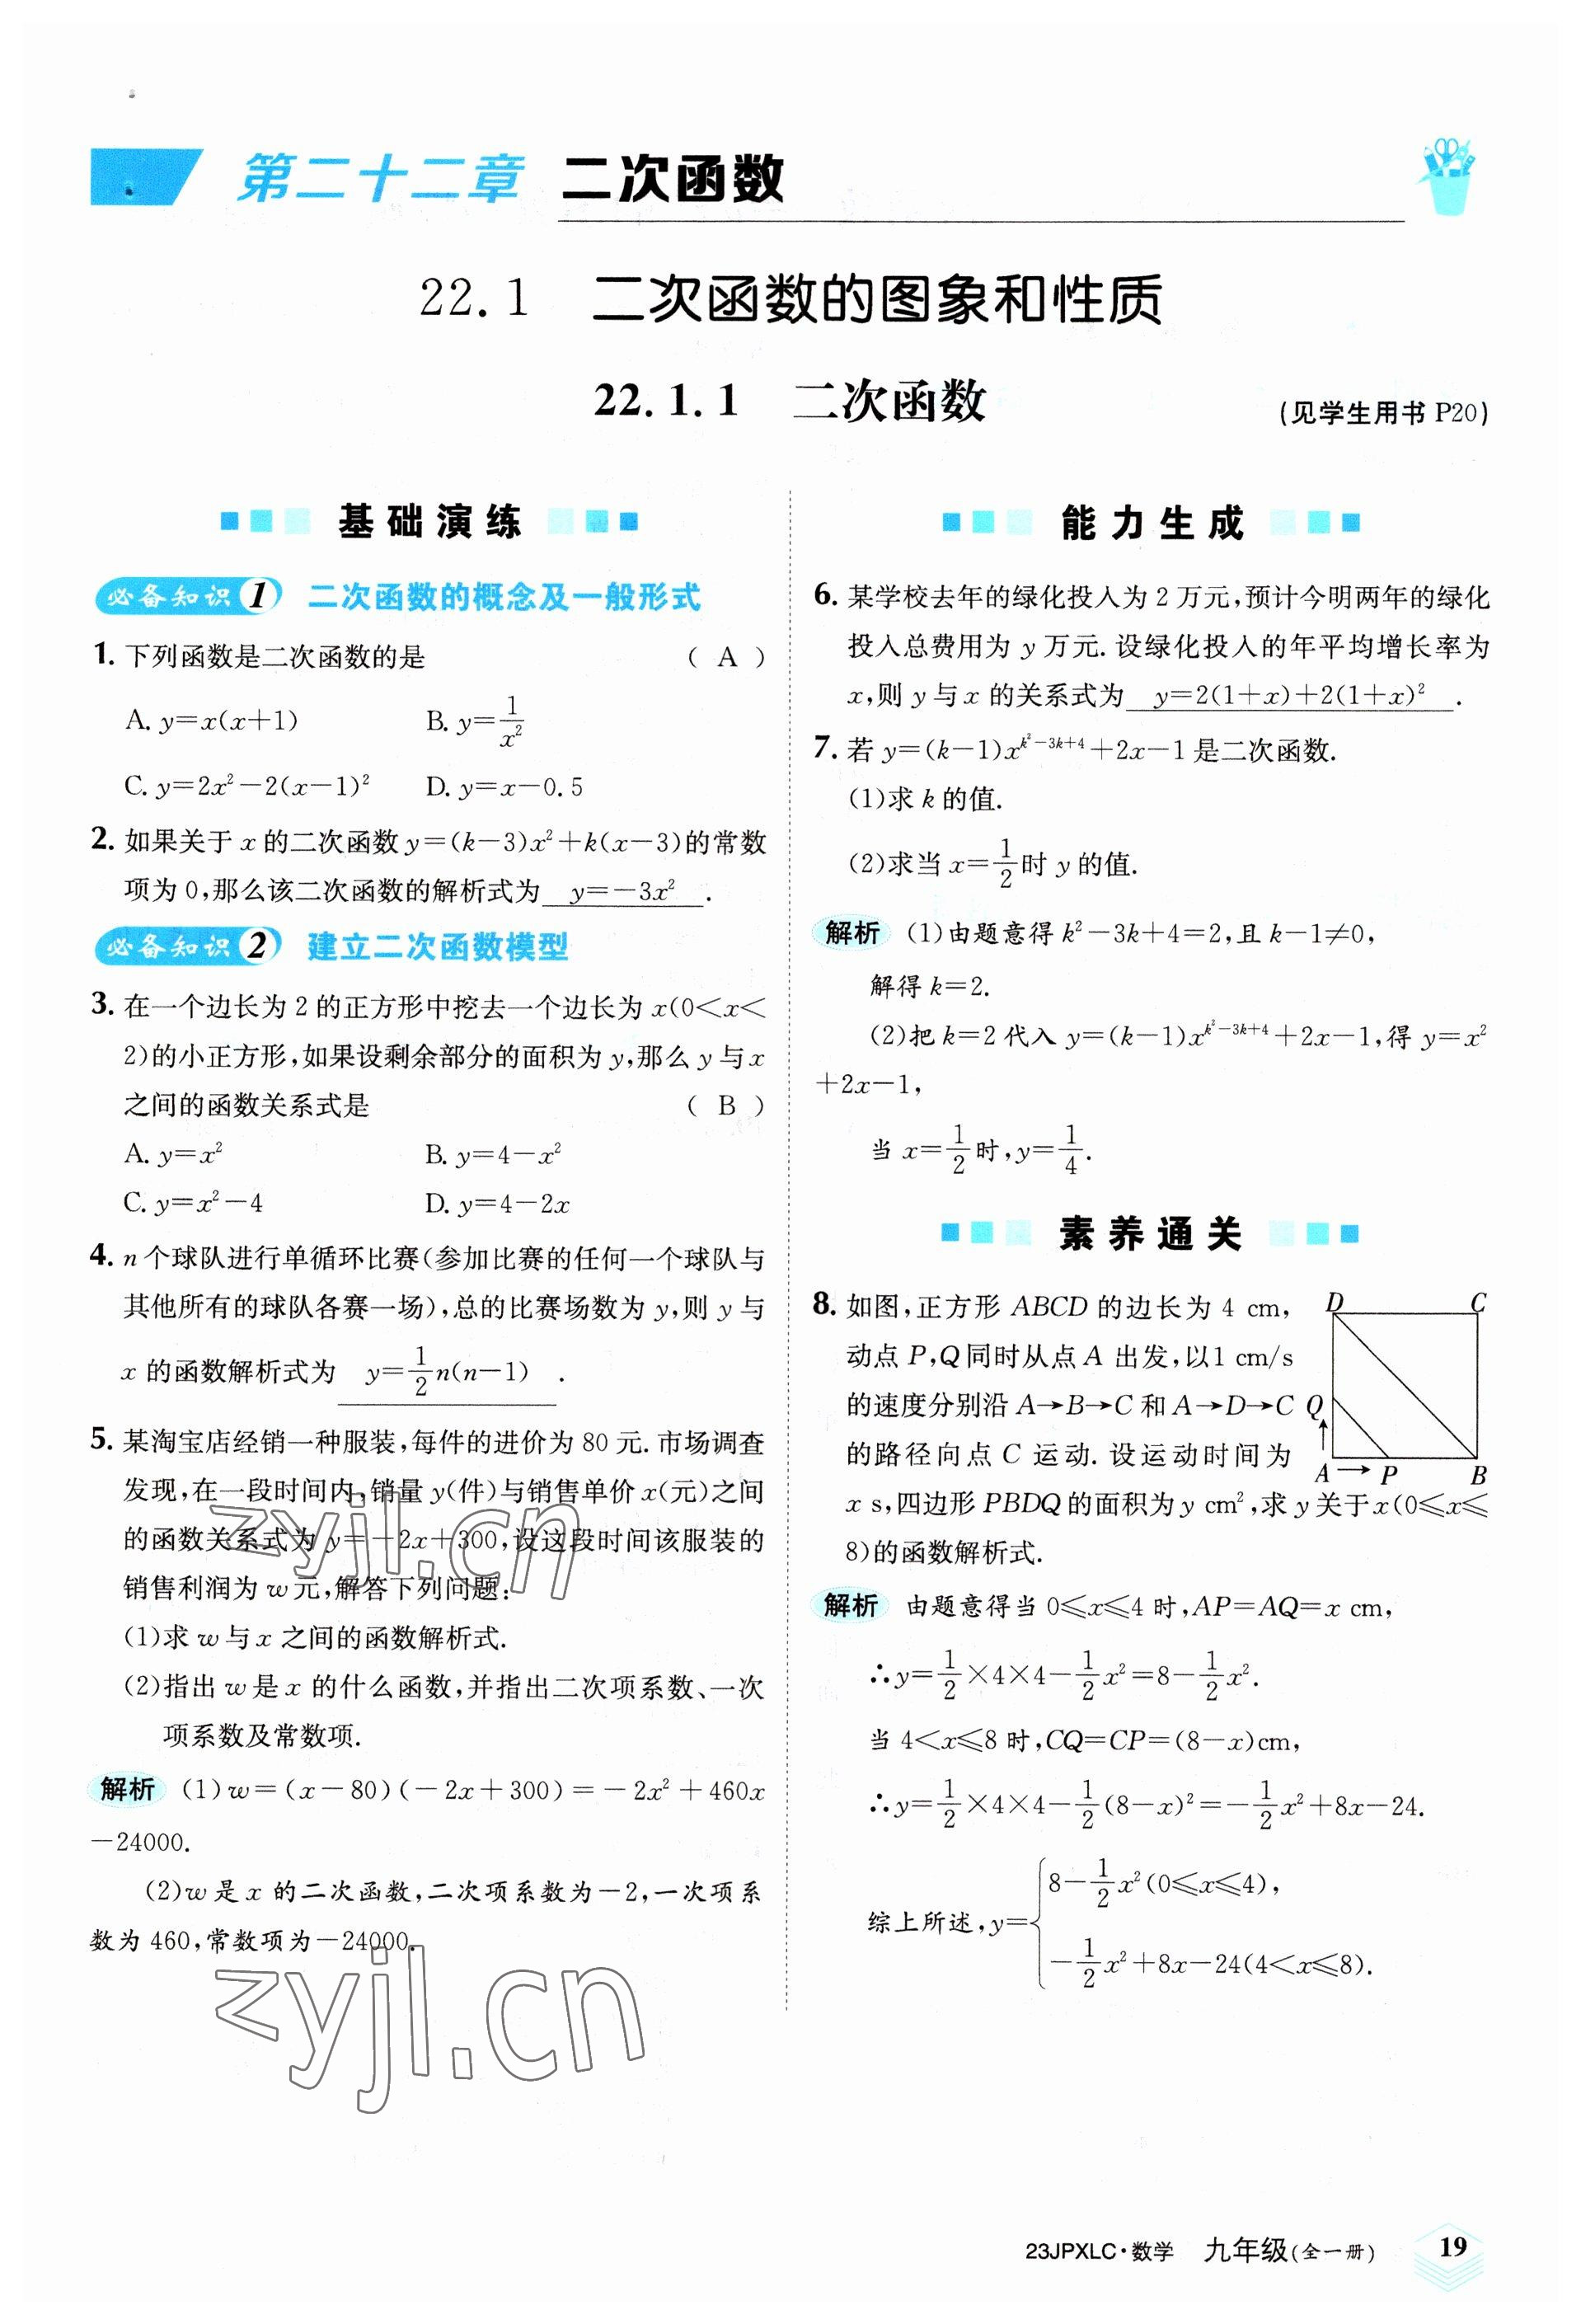 第二十二章 二次函数
22.1 二次函数的图象和性质
22.1.1 二次函数
(见学生用书 P20)
基础演练
必备知识 1 二次函数的概念及一般形式
1. 下列函数是二次函数的是 ( A )
A. y=x(x+1) B. y=1/x²
C. y=2x²-2(x-1)² D. y=x-0.5
2. 如果关于 x 的二次函数 y=(k-3)x²+k(x-3)的常数
项为 0,那么该二次函数的解析式为 y=-3x² .
必备知识 2 建立二次函数模型
3. 在一个边长为 2 的正方形中挖去一个边长为 x(0<x<
2)的小正方形,如果设剩余部分的面积为 y,那么 y 与 x
之间的函数关系式是 ( B )
A. y=x² B. y=4-x²
C. y=x²-4 D. y=4-2x
4. n 个球队进行单循环比赛(参加比赛的任何一个球队与
其他所有的球队各赛一场),总的比赛场数为 y,则 y 与
x 的函数解析式为 y=1/2n(n-1) .
5. 某淘宝店经销一种服装,每件的进价为 80 元. 市场调查
发现,在一段时间内,销量 y(件)与销售单价 x(元)之间
的函数关系式为 y=-2x+300,设这段时间该服装的
销售利润为 w 元,解答下列问题:
(1)求 w 与 x 之间的函数解析式.
(2)指出 w 是 x 的什么函数,并指出二次项系数、一次
项系数及常数项.
解析 (1)w=(x-80)(-2x+300)=-2x²+460x
-24000.
(2)w 是 x 的二次函数,二次项系数为-2,一次项系
数为 460,常数项为-24000.
zyjl.cn
zyjl.cn
能力生成
6. 某学校去年的绿化投入为 2 万元,预计今明两年的绿化
投入总费用为 y 万元. 设绿化投入的年平均增长率为
x,则 y 与 x 的关系式为 y=2(1+x)+2(1+x)² .
7. 若 y=(k-1)x^(k²-3k+4)+2x-1 是二次函数.
(1)求 k 的值.
(2)求当 x=1/2时 y 的值.
解析 (1)由题意得 k²-3k+4=2,且 k-1≠0,
解得 k=2.
(2)把 k=2 代入 y=(k-1)x^(k²-3k+4)+2x-1,得 y=x²
+2x-1,
当 x=1/2时,y=1/4.
素养通关
8. 如图,正方形 ABCD 的边长为 4 cm,
动点 P,Q 同时从点 A 出发,以1 cm/s
的速度分别沿 A→B→C 和 A→D→C
的路径向点 C 运动. 设运动时间为
x s,四边形 PBDQ 的面积为 y cm²,求 y 关于 x(0≤x≤
8)的函数解析式.
D C
Q
A P B
解析 由题意得当 0≤x≤4 时,AP=AQ=x cm,
∴y=1/2×4×4-1/2x²=8-1/2x².
当 4<x≤8 时,CQ=CP=(8-x)cm,
∴y=1/2×4×4-1/2(8-x)²=-1/2x²+8x-24.
综上所述,y={8-1/2x²(0≤x≤4),
-1/2x²+8x-24(4<x≤8).
23JPXLC·数学 九年级(全一册) 19